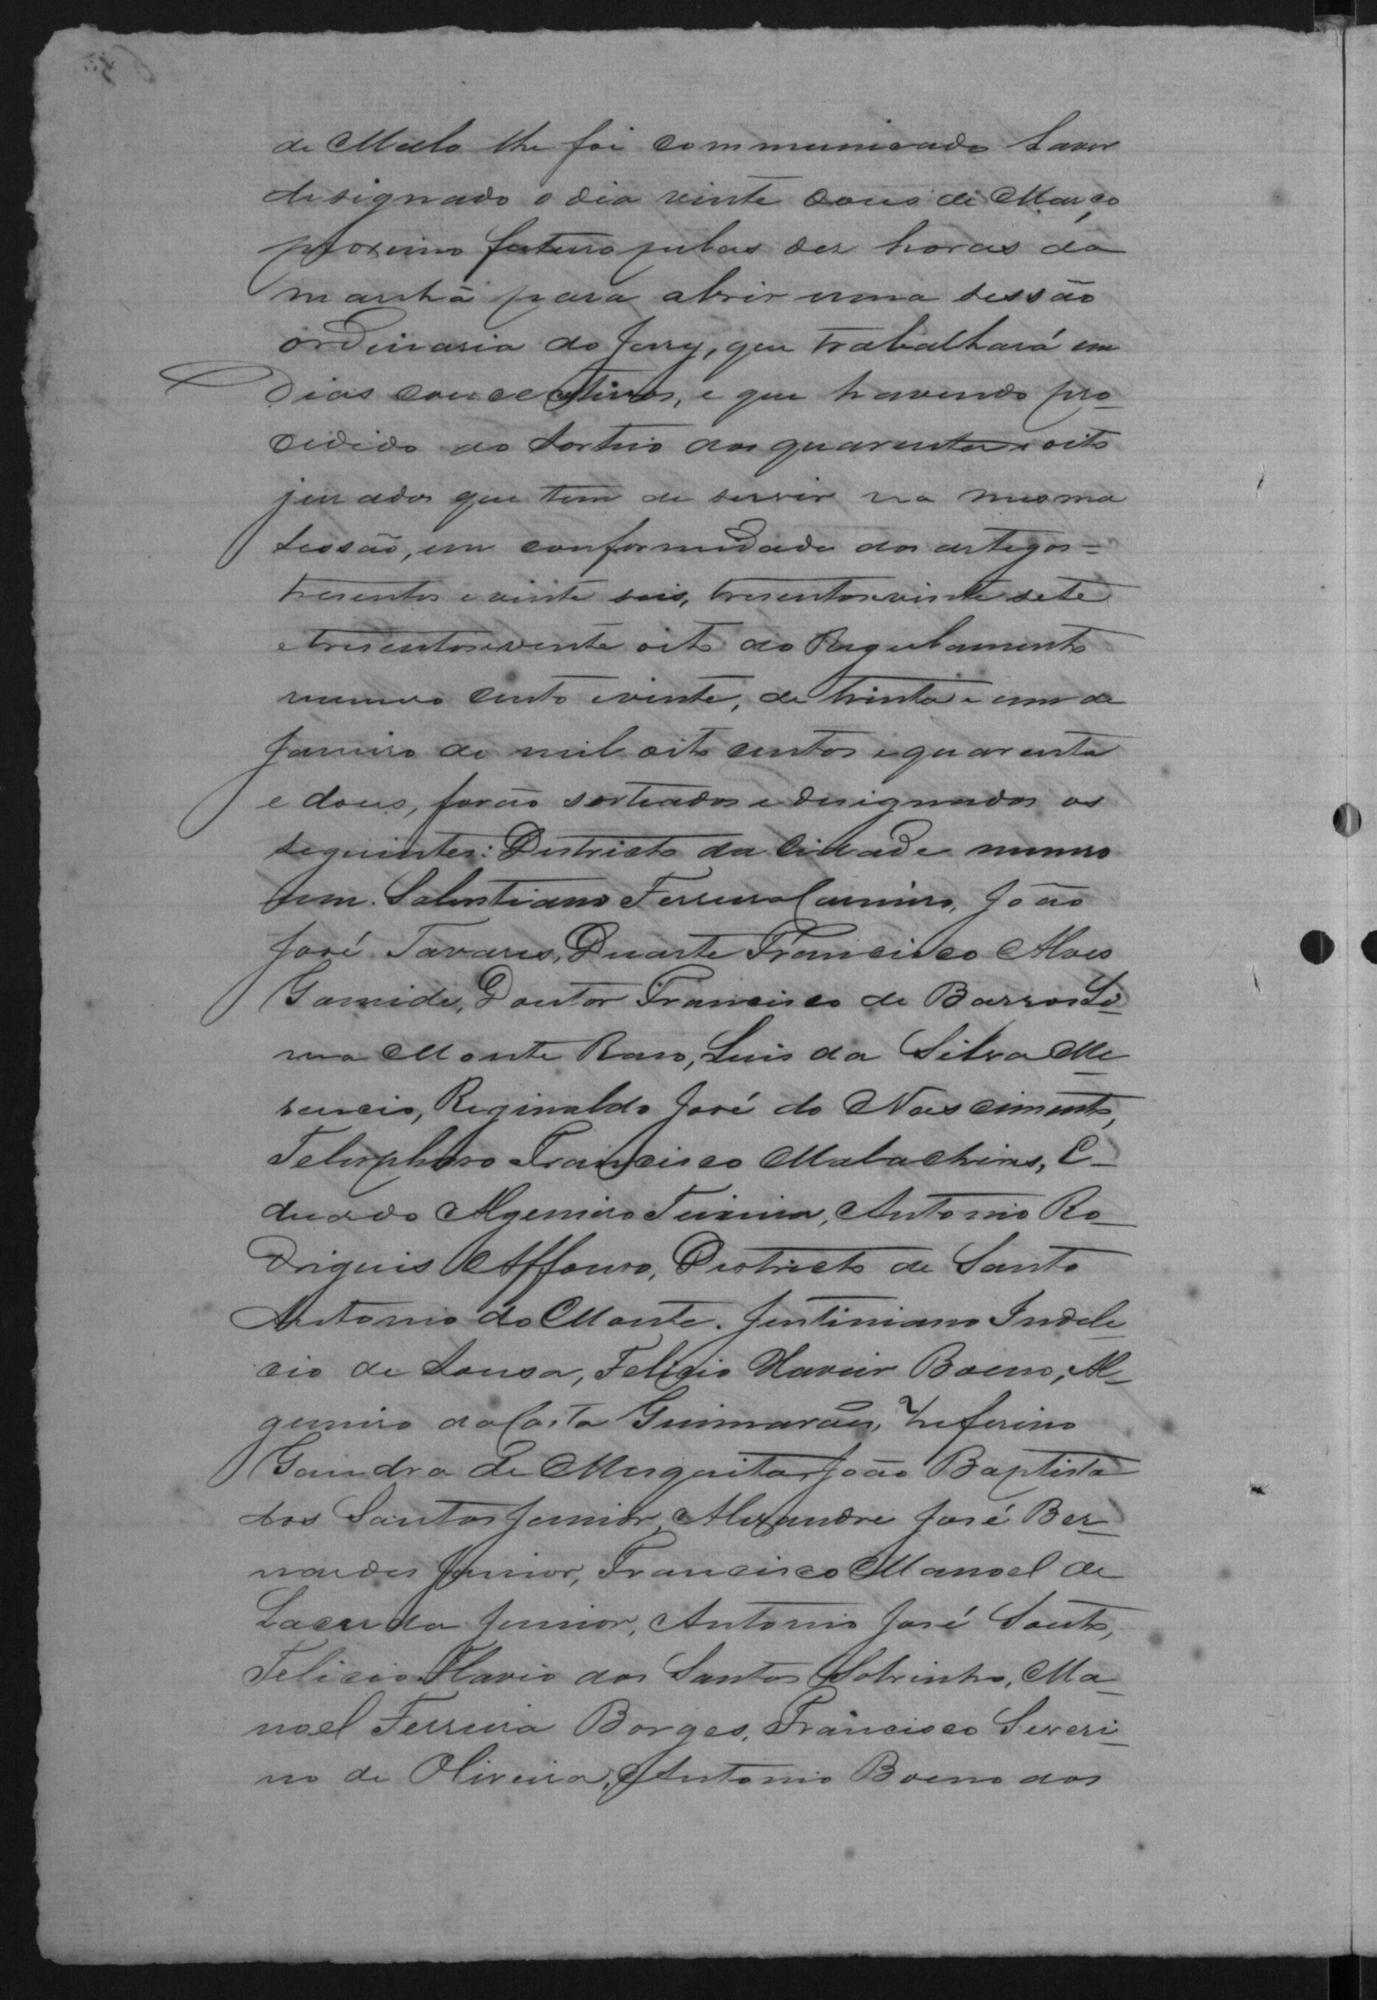 de Mello lhe foi communicado haver
designado o dia vinte dous de Março
proximo futuro pelas dez horas da
manhã para abrir uma sessão
ordinaria do Jury, que trabalhará em
dias concecutivos, e que havendo pro-
cedido ao sorteio dos quarenta e oito
jurados que tem de servir na mesma
sessão, em conformidade dos artigos =
tresentos e vinte seis, tresentos e vinte sete
e tresentos e vinte oito do Regulamento
numero cento e vinte, de trinta e um de
Janeiro de mil oito centos e quarenta
e dous, forão sorteados e designados os
seguintes: Districto da Cidade numero
um. Salustiano Ferreira Carneiro, João
José Tavares, Duarte Francisco Alves
Gomide, Doutor Francisco de Barros Li-
ma Monte Raso, Luis da Silva Me-
rencio, Reginaldo José do Nascimento,
Telesphoro Francisco Malachias, E-
duardo Algemiro Teixeira, Antonio Ro-
drigues Affonso, Districto de Santo
Antonio do Monte. Justiniano Indale-
cio de Sousa, Felicio Xavier Boeno, Al-
gemiro da Costa Guimarães, Zeferino
Gandra de Mesquita, João Baptista
dos Santos Junior, Alexandre José Ber-
nardes Junior, Francisco Manoel de
Lacerda Junior, Antonio José Souto,
Felicio Flavio dos Santos Sobrinho, Ma-
noel Ferreira Borges, Francisco Severi-
no de Oliveira, Antonio Boeno dos